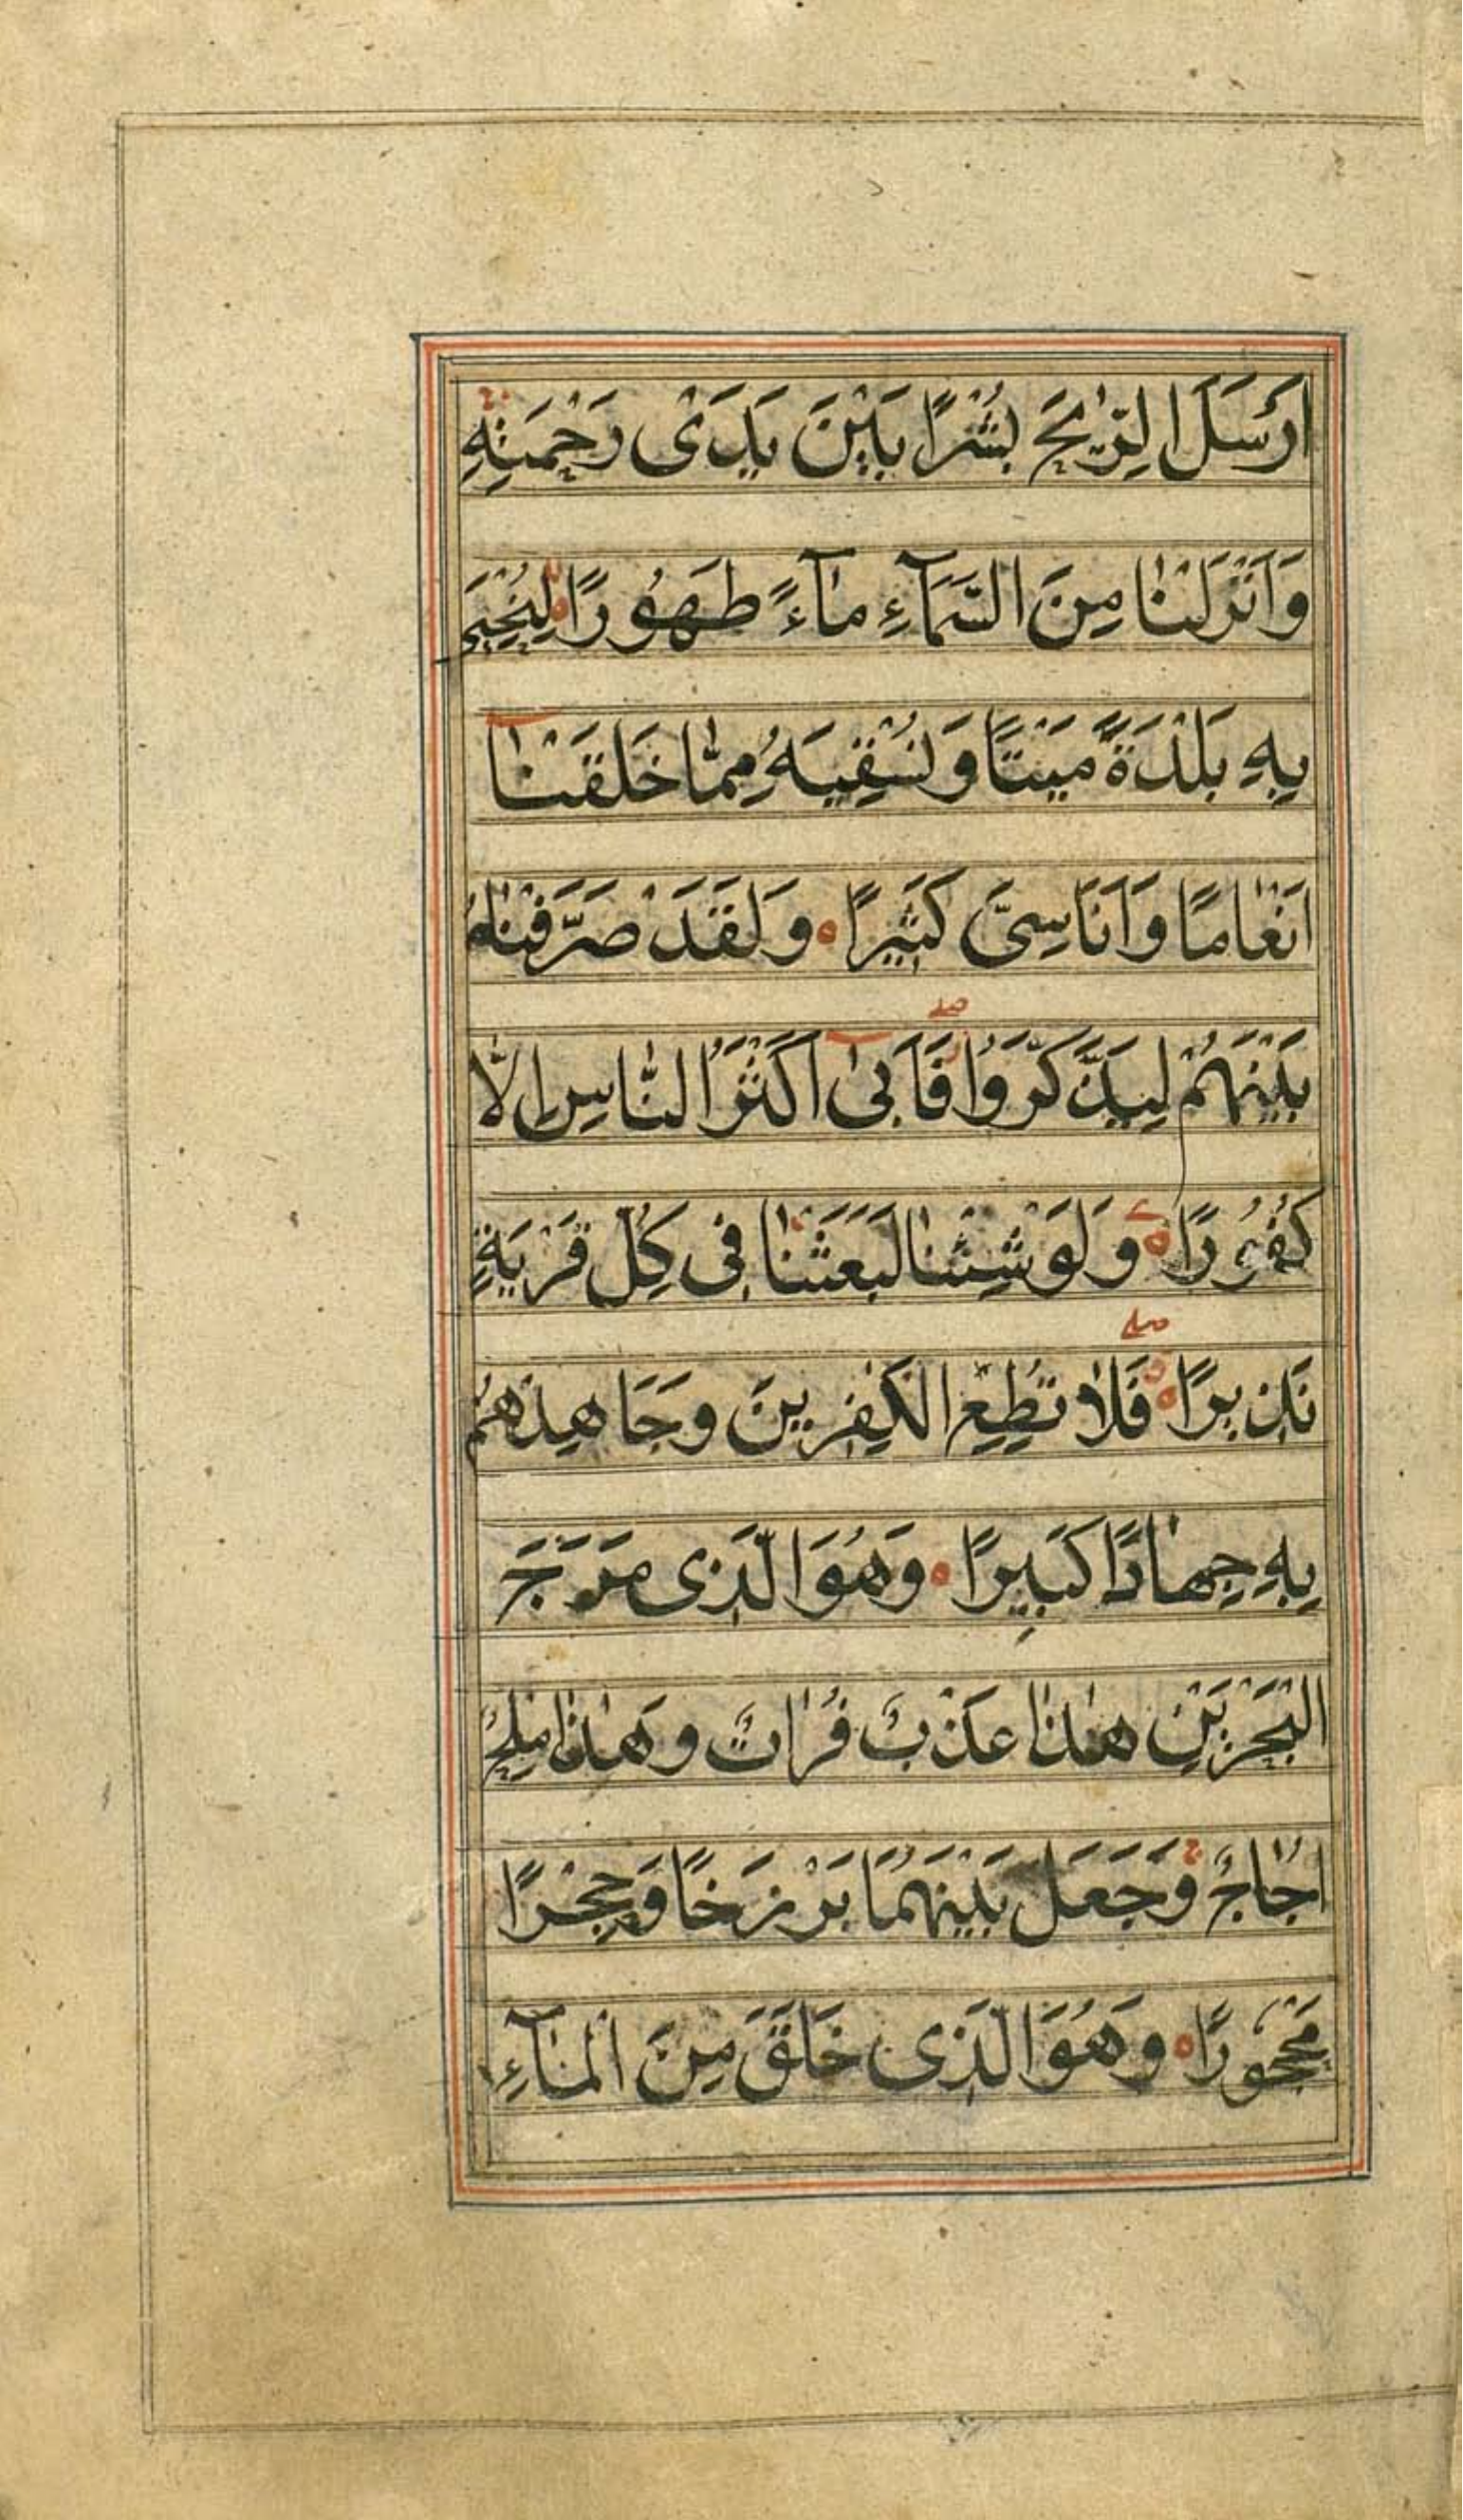 اَرْسَلَ الرِّيٰحَ بُشْرًا بَيْنَ يَدَىْ رَحْمَتِهٖ
وَاَنْزَلْنَا مِنَ السَّمَآءِ مَآءً طَهُورًا لِنُحْيِىَ
بِهٖ بَلْدَةً مَيْتًا وَنُسْقِيَهُ مِمَّا خَلَقْنَآ
اَنْعَامًا وَاَنَاسِىَّ كَثِيرًا ه وَلَقَدْ صَرَّفْنَاهُ
بَيْنَهُمْ لِيَذَّكَّرُوا فَاَبىٰٓ اَكْثَرُ النَّاسِ اِلَّا
كُفُورًا ه وَلَوْ شِئْنَا لَبَعَثْنَا فِى كُلِّ قَرْيَةٍ
نَذِيرًا ه فَلَا تُطِعِ الْكٰفِرِينَ وَجَاهِدْهُمْ
بِهٖ جِهَادًا كَبِيرًا ه وَهُوَ الَّذِى مَرَجَ
الْبَحْرَيْنِ هٰذَا عَذْبٌ فُرَاتٌ وَهٰذَا مِلْحٌ
اُجَاجٌ وَجَعَلَ بَيْنَهُمَا بَرْزَخًا وَحِجْرًا
مَحْجُورًا ه وَهُوَ الَّذِى خَلَقَ مِنَ الْمَآءِ